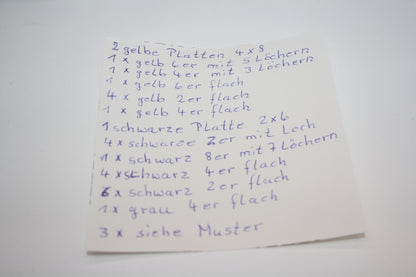 2 gelbe Platten 4x8
1 x gelb 6er mit 5 Löchern
1 x gelb 4er mit 3 Löchern
1 x gelb 6er flach
4 x gelb 2er flach
1 x gelb 4er flach
1 schwarze Platte 2x6
4 x schwarze 2er mit Loch
1 x schwarz 8er mit 7 Löchern
4 x schwarz 4er flach
6 x schwarz 2er flach
1 x grau 4er flach
3 x siehe Muster